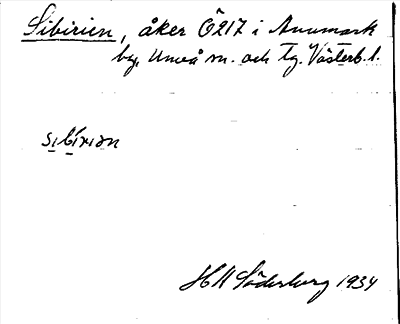 Sibirien, åker Ö217 i Anumark
by, Umeå sn. och tg. Västerb. l.
sibiriən
H Söderberg 1934